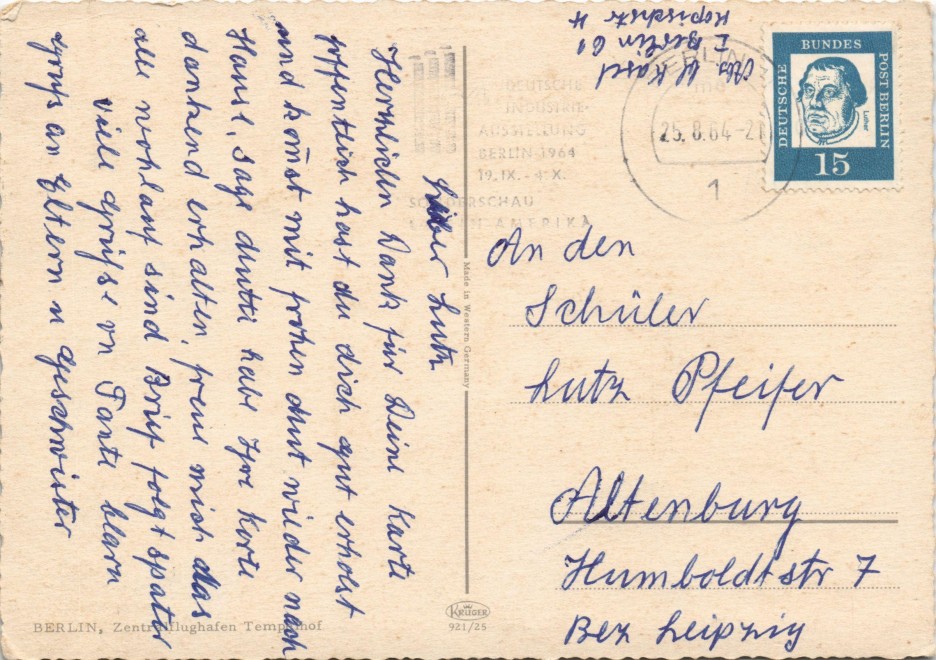 Lieber Lutz
Herzlichen Dank für Deine Karte
hoffentlich hast du dich gut erholst
und kom̄st mit frohen Mut wieder nach
Haus!, Sage Mutti habe Ihre Karte
dankend erhalten, freue mich das
alle wohlauf sind Brief folgt später
Viele Grüße von Tante Klara
Gruß an Eltern u Geschwister
Abs W. Kasel
I Berlin 61
Kopischstr 4
DEUTSCHE
INDUSTRIE-
AUSSTELLUNG
BERLIN 1964
19.IX.-4.X.
SONDERSCHAU
LATEIN AMERIKA
BERLIN
25.8.64-21
1
DEUTSCHE
BUNDES
POST BERLIN
Luther
15
An den
Schüler
Lutz Pfeifer
Altenburg
Humboldtstr 7
Bez Leipzig
Made in Western Germany
KRÜGER
921/25
BERLIN, Zentralflughafen Tempelhof